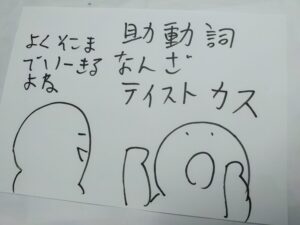 助動詞
なんざ
テイストカス
よくそこま
でいーきる
よね